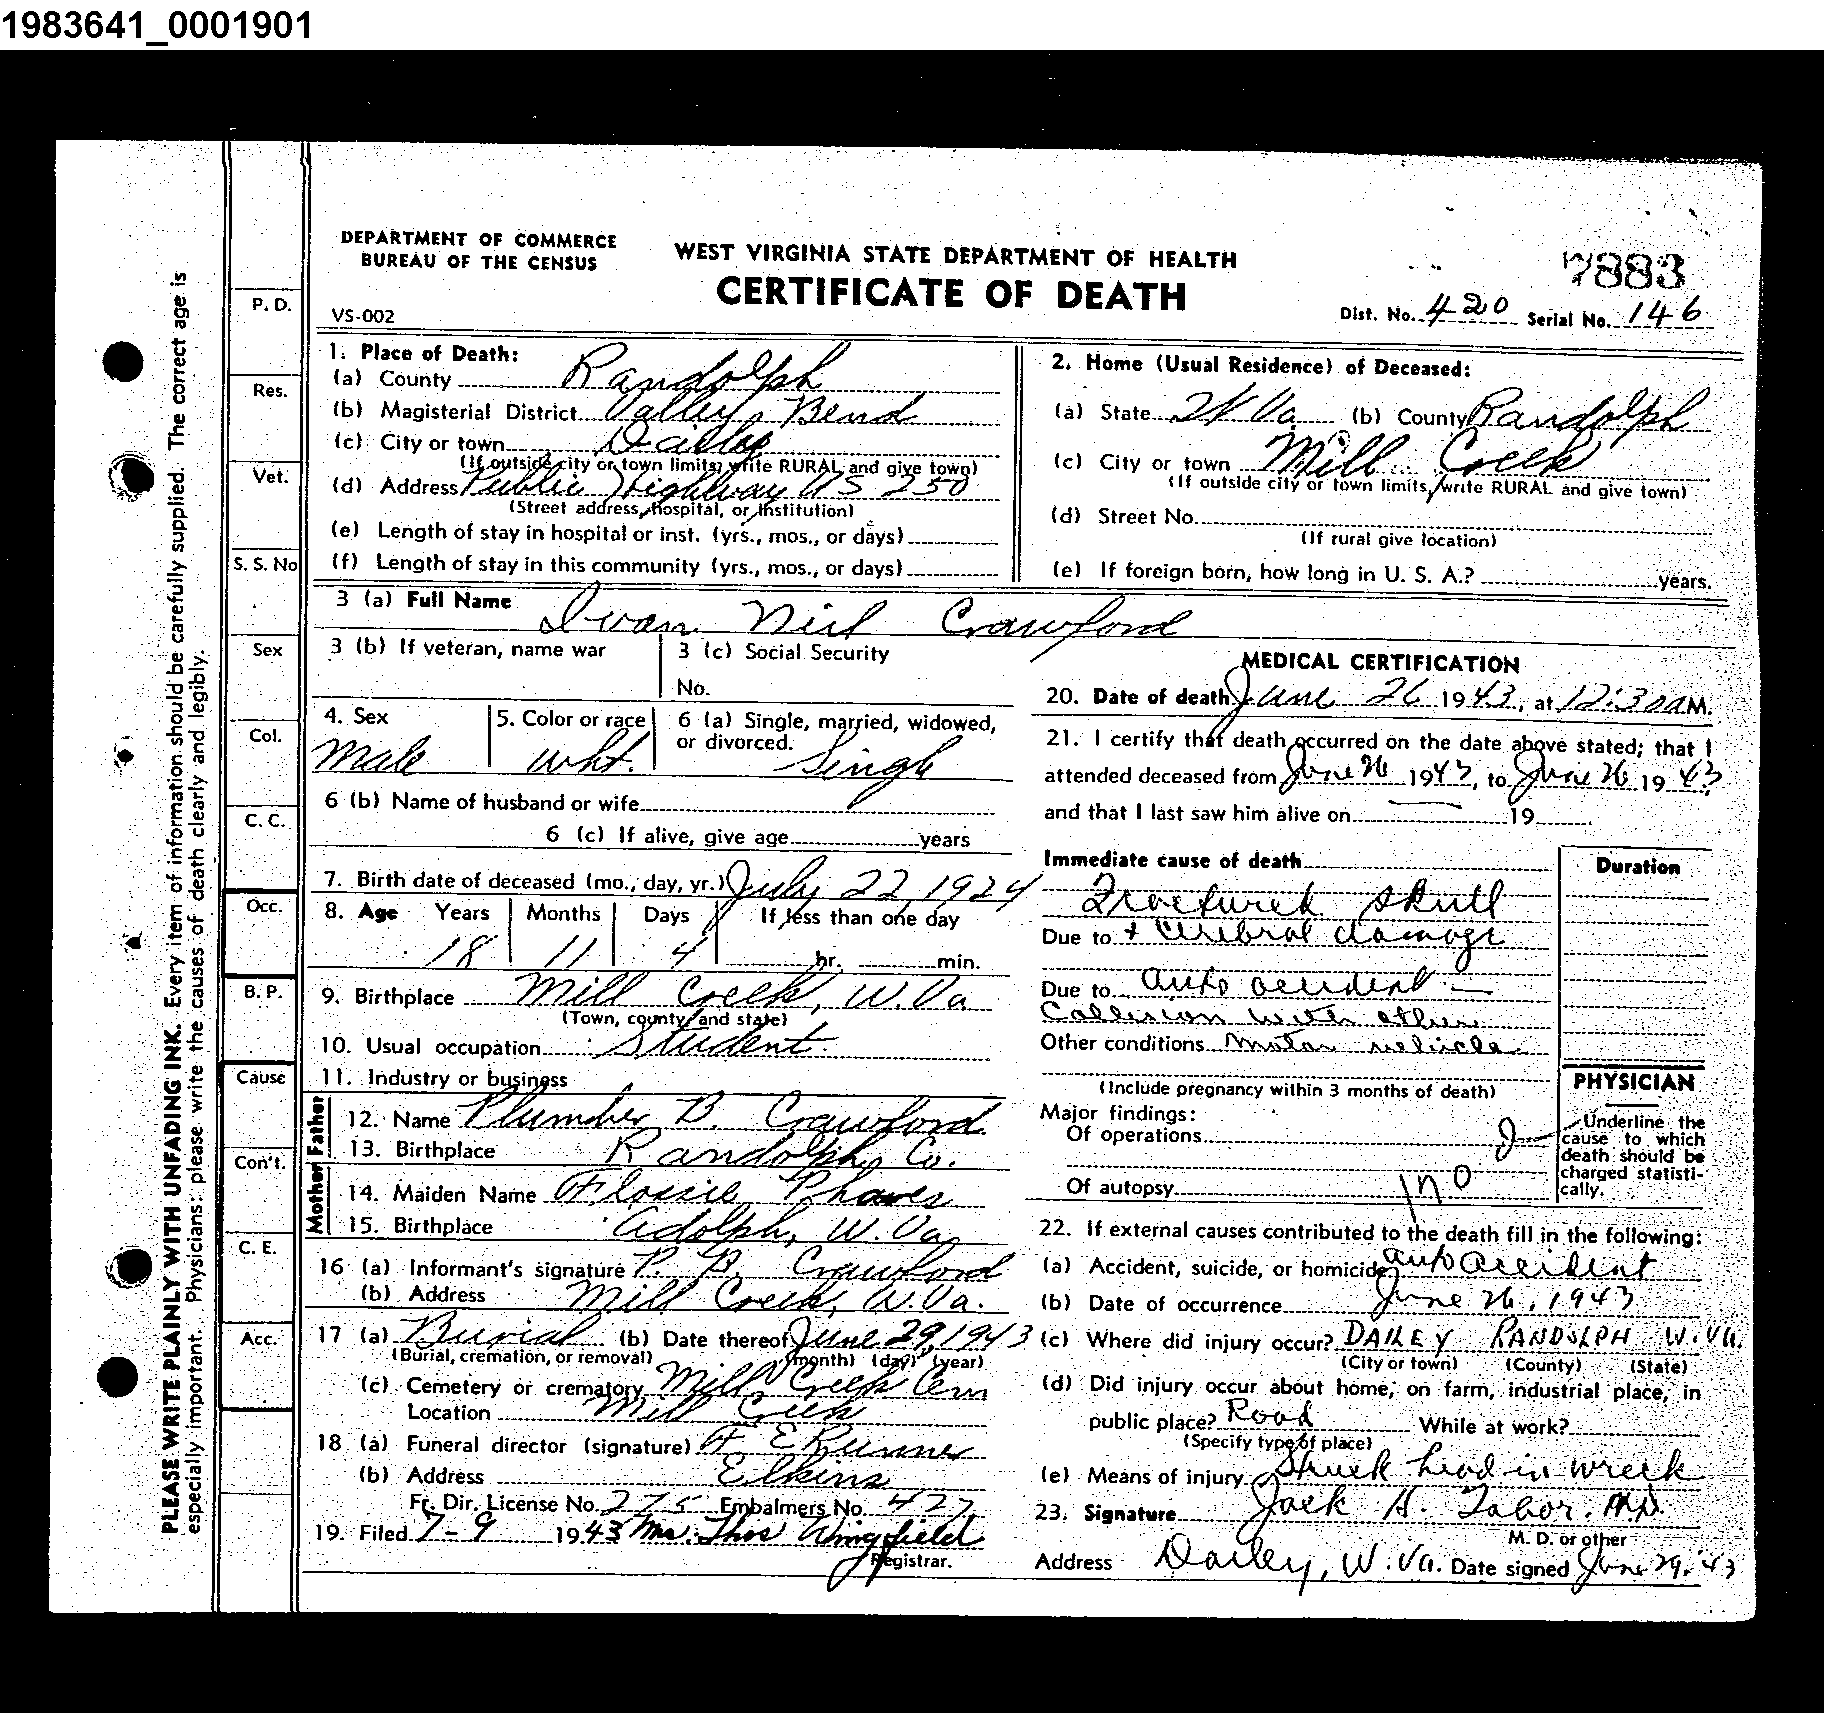 1983641_0001901
PLEASE WRITE PLAINLY WITH UNFADING INK. Every item of information should be carefully supplied. The correct age is
especially important. Physicians: please write the causes of death clearly and legibly.
P. D.
Res.
Vet.
S. S. No
Sex
Col.
C. C.
Occ.
B. P.
Cause
Con't.
C. E.
Acc.
DEPARTMENT OF COMMERCE
BUREAU OF THE CENSUS
VS-002
WEST VIRGINIA STATE DEPARTMENT OF HEALTH
CERTIFICATE OF DEATH
7883
Dist. No. 420 Serial No. 146
1. Place of Death:
(a) County Randolph
(b) Magisterial District Valley Bend
(c) City or town Dailey
(If outside city or town limits, write RURAL and give town)
(d) Address Public Highway US 250
(Street address, hospital, or institution)
(e) Length of stay in hospital or inst. (yrs., mos., or days)
(f) Length of stay in this community (yrs., mos., or days)
2. Home (Usual Residence) of Deceased:
(a) State W Va (b) County Randolph
(c) City or town Mill Creek
(If outside city or town limits, write RURAL and give town)
(d) Street No.
(If rural give location)
(e) If foreign born, how long in U. S. A.? years.
3 (a) Full Name Ivan Neil Crawford
3 (b) If veteran, name war
3 (c) Social Security
No.
4. Sex Male
5. Color or race Wht.
6 (a) Single, married, widowed,
or divorced. Single
6 (b) Name of husband or wife
6 (c) If alive, give age years
7. Birth date of deceased (mo., day, yr.) July 22, 1924
8. Age Years Months Days If less than one day
18 11 4 hr. min.
9. Birthplace Mill Creek, W.Va
(Town, county and state)
10. Usual occupation Student
11. Industry or business
Father
12. Name Plumber B. Crawford
13. Birthplace Randolph Co.
Mother
14. Maiden Name Flossie Phares
15. Birthplace Adolph, W.Va
16 (a) Informant's signature P. B. Crawford
(b) Address Mill Creek, W.Va.
17 (a) Burial (b) Date thereof June 29, 1943
(Burial, cremation, or removal) (month) (day) (year)
(c) Cemetery or crematory Mill Creek Cem
Location Mill Creek
18 (a) Funeral director (signature) F E Runner
(b) Address Elkins
Fr. Dir. License No. 275 Embalmers No. 427
19. Filed 7-9 1943 Mrs. Thos Wingfield
Registrar.
MEDICAL CERTIFICATION
20. Date of death June 26 1943, at 12:30 a M.
21. I certify that death occurred on the date above stated; that I
attended deceased from June 26 1943, to June 26 1943
and that I last saw him alive on — 19
Immediate cause of death
Fractured skull
Due to + cerebral damage
Due to auto accident —
Collision with other
Other conditions motor vehicle
(Include pregnancy within 3 months of death)
Major findings:
Of operations
Of autopsy no
Duration
PHYSICIAN
Underline the
cause to which
death should be
charged statisti-
cally.
22. If external causes contributed to the death fill in the following:
(a) Accident, suicide, or homicide auto accident
(b) Date of occurrence June 26, 1943
(c) Where did injury occur? DAILEY RANDOLPH W.VA.
(City or town) (County) (State)
(d) Did injury occur about home, on farm, industrial place, in
public place? Road While at work?
(Specify type of place)
(e) Means of injury Struck head in wreck
23. Signature Jack H. Tabor. M.D.
M. D. or other
Address Dailey, W. Va. Date signed June 29, '43